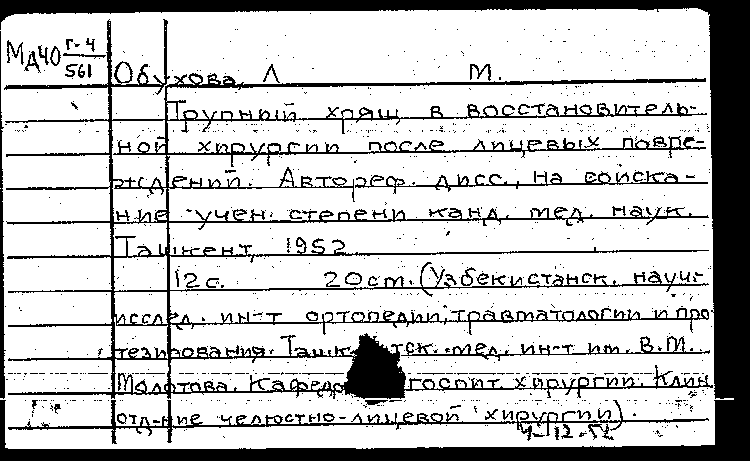 МД40 Г-4
561
Обухова, Л М.
Трупный хрящ в восстановитель-
ной хирургии после лицевых повре-
ждений. Автореф. дисс., на соиска-
ние учен. степени канд. мед. наук.
Ташкент, 1952
12 с. 20 cm. (Узбекистанск. научн.
исслед. ин-т ортопедии, травматологии и про
тезирования. Ташк тск. мед. ин-т им. В.М.
Молотова. Кафедр госпит. хирургии. Клин.
отд-ние челюстно-лицевой хирургии).